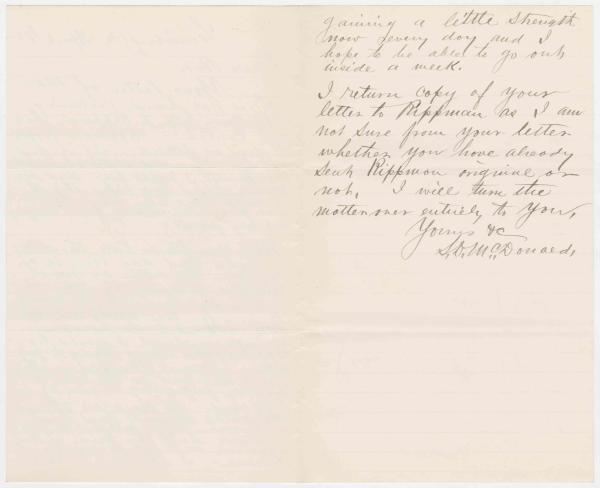 gaining a little strength
now every day and I
hope to be able to go out
inside a week.
I return copy of your
letter to Rippman as I am
not sure from your letter
whether you have already
sent Rippman original or
not, I will turn the
matter over entirely to you,
Yours &c
S, D, McDonald,